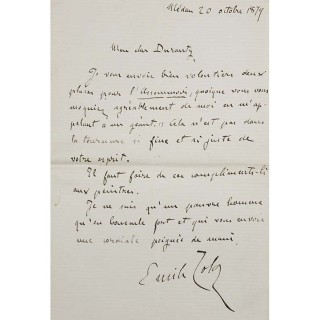 Médan 20 octobre 1879
Mon cher Duranty
Je vous envoie bien volontiers deux
places pour l'Assommoir, quoique vous vous
moquiez agréablement de moi en m'ap-
pelant « un géant ». Cela n'est pas dans
la tournure si fine et si juste de
votre esprit.
Il faut faire de ces compliments-là
aux peintres.
Je ne suis qu'un pauvre homme
qu'on bouscule fort et qui vous envoie
une cordiale poignée de main.
Emile Zola